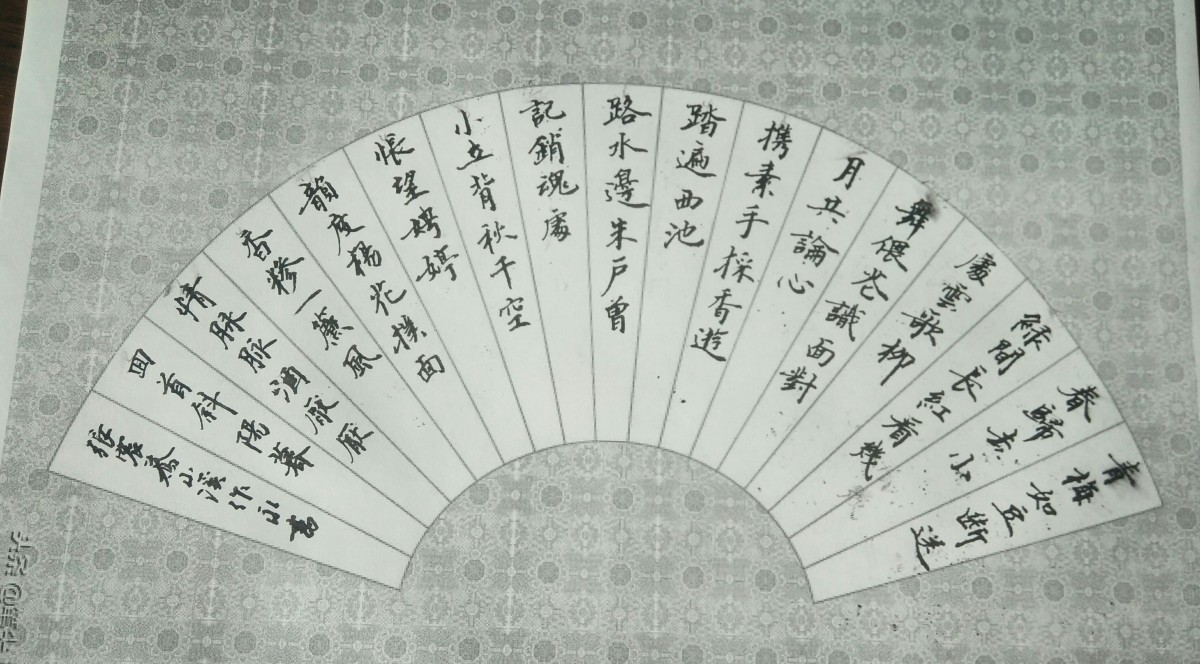 青梅如豆斷送
春歸去小
綠間長紅看幾
處雲歌柳
舞偎花識面對
月共論心
携素手採香遊
踏遍西池
路水邊朱戶曾
記銷魂處
小立背秋千空
悵望娉婷
韻度楊花撲面
香糝一簾風
情脉脉酒厭厭
回首斜陽暮
山溪作永書